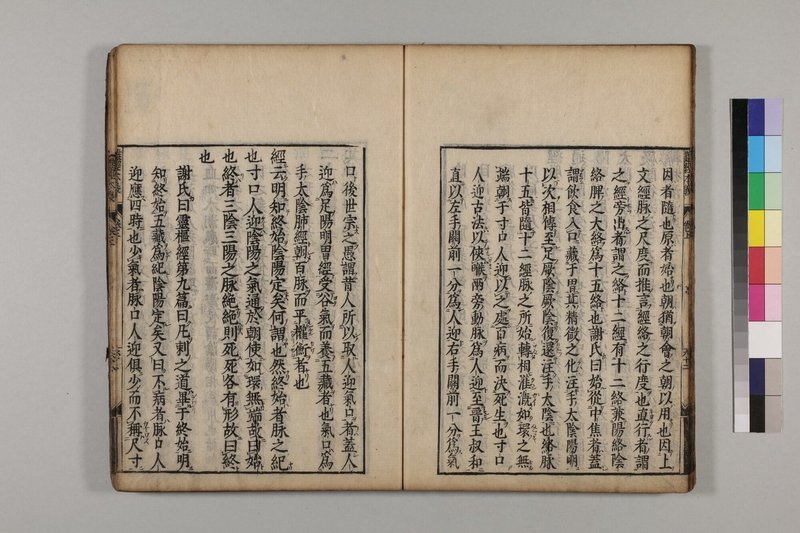 因者隨也原者始也朝猶朝會之朝以用也因上
文經脉之尺度而推言經絡之行度也直行者謂
之經旁出者謂之絡十二經有十二絡兼陽絡陰
絡脾之大絡爲十五絡也謝氏曰始從中焦者蓋
謂飲食入口藏于胃其精微之化注手太陰陽明
以次相傳至足厥陰厥陰復還注手太陰也絡脉
十五皆隨十二經脉之所始轉相灌漑如環之無
端朝于寸口人迎以之處百病而決死生也寸口
人迎古法以俠喉兩旁動脉爲人迎至晋王叔和
直以左手關前一分爲人迎右手關前一分爲氣
口後世宗之愚謂昔人所以取人迎氣口者蓋人
迎爲足陽明胃經受谷氣而養五藏者也氣口爲
手太陰肺經朝百脉而平權衡者也
經云明知終始陰陽定矣何謂也然終始者脉之紀
也寸口人迎陰陽之氣通於朝使如環無端故曰始
也終者三陰三陽之脉絶絶則死死各有形故曰終
也
謝氏曰靈樞經第九篇曰凡刺之道畢于終始明
知終始五藏爲紀陰陽定矣又曰不病者脉口人
迎應四時也少氣者脉口人迎俱少而不稱尺寸